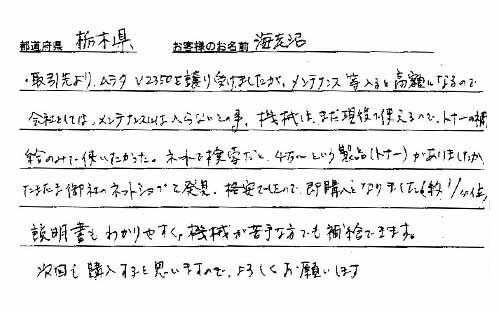 都道府県 栃木県 お客様のお名前 海老沼
・取引先より、ムラタ V2350を譲り受けましたが、メンテナンス等入ると高額になるので
会社としては、メンテナンスには入らないとの事。機械は、まだ現役で使えるので、トナーの補
給のみで使いたかった。ネットで検索だと、4万〜という製品(トナー)がありましたが、
たまたま御社のネットショップを発見。格安でしたので、即購入となりました。
説明書もわかりやすく、機械が苦手な方でも補給できます。
次回も購入すると思いますので、よろしくお願いします